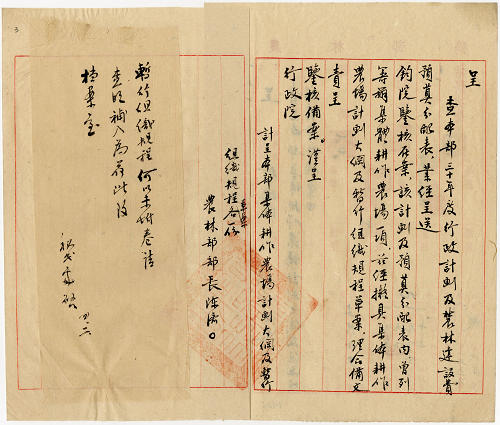 呈
查本部三十年度行政計劃及農林建設費
預算分配表業經呈送
鈞院鑒核在案該計劃及預算分配表內曾列
籌辦集體耕作農場一項茲經擬具集體耕作
農場計劃大綱及暫行組織規程草案理合備文
賫呈
鑒核備案。謹呈
行政院
計呈本部集體耕作農場計劃大綱及暫行
組織規程草案各一份
農林部部長陳濟
暫行組織規程何以未附卷請
查明補入為荷此致
檔案室
3